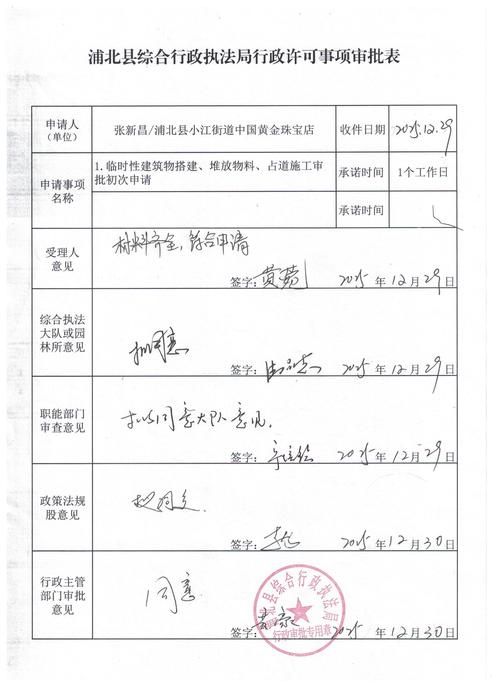 浦北县综合行政执法局行政许可事项审批表
申请人
（单位）
张新昌/浦北县小江街道中国黄金珠宝店
收件日期
2025.12.29
申请事项
名称
1.临时性建筑物搭建、堆放物料、占道施工审
批初次申请
承诺时间
1个工作日
承诺时间
受理人
意见
材料齐全，符合申请
签字：
2025年12月29日
综合执法
大队或园
林所意见
拟同意
签字：
2025年12月29日
职能部门
审查意见
拟同意大队意见。
签字：
2025年12月29日
政策法规
股意见
拟同意
签字：
2025年12月30日
行政主管
部门审批
意见
同意
签字：
2025年12月30日
浦北县综合行政执法局
行政审批专用章